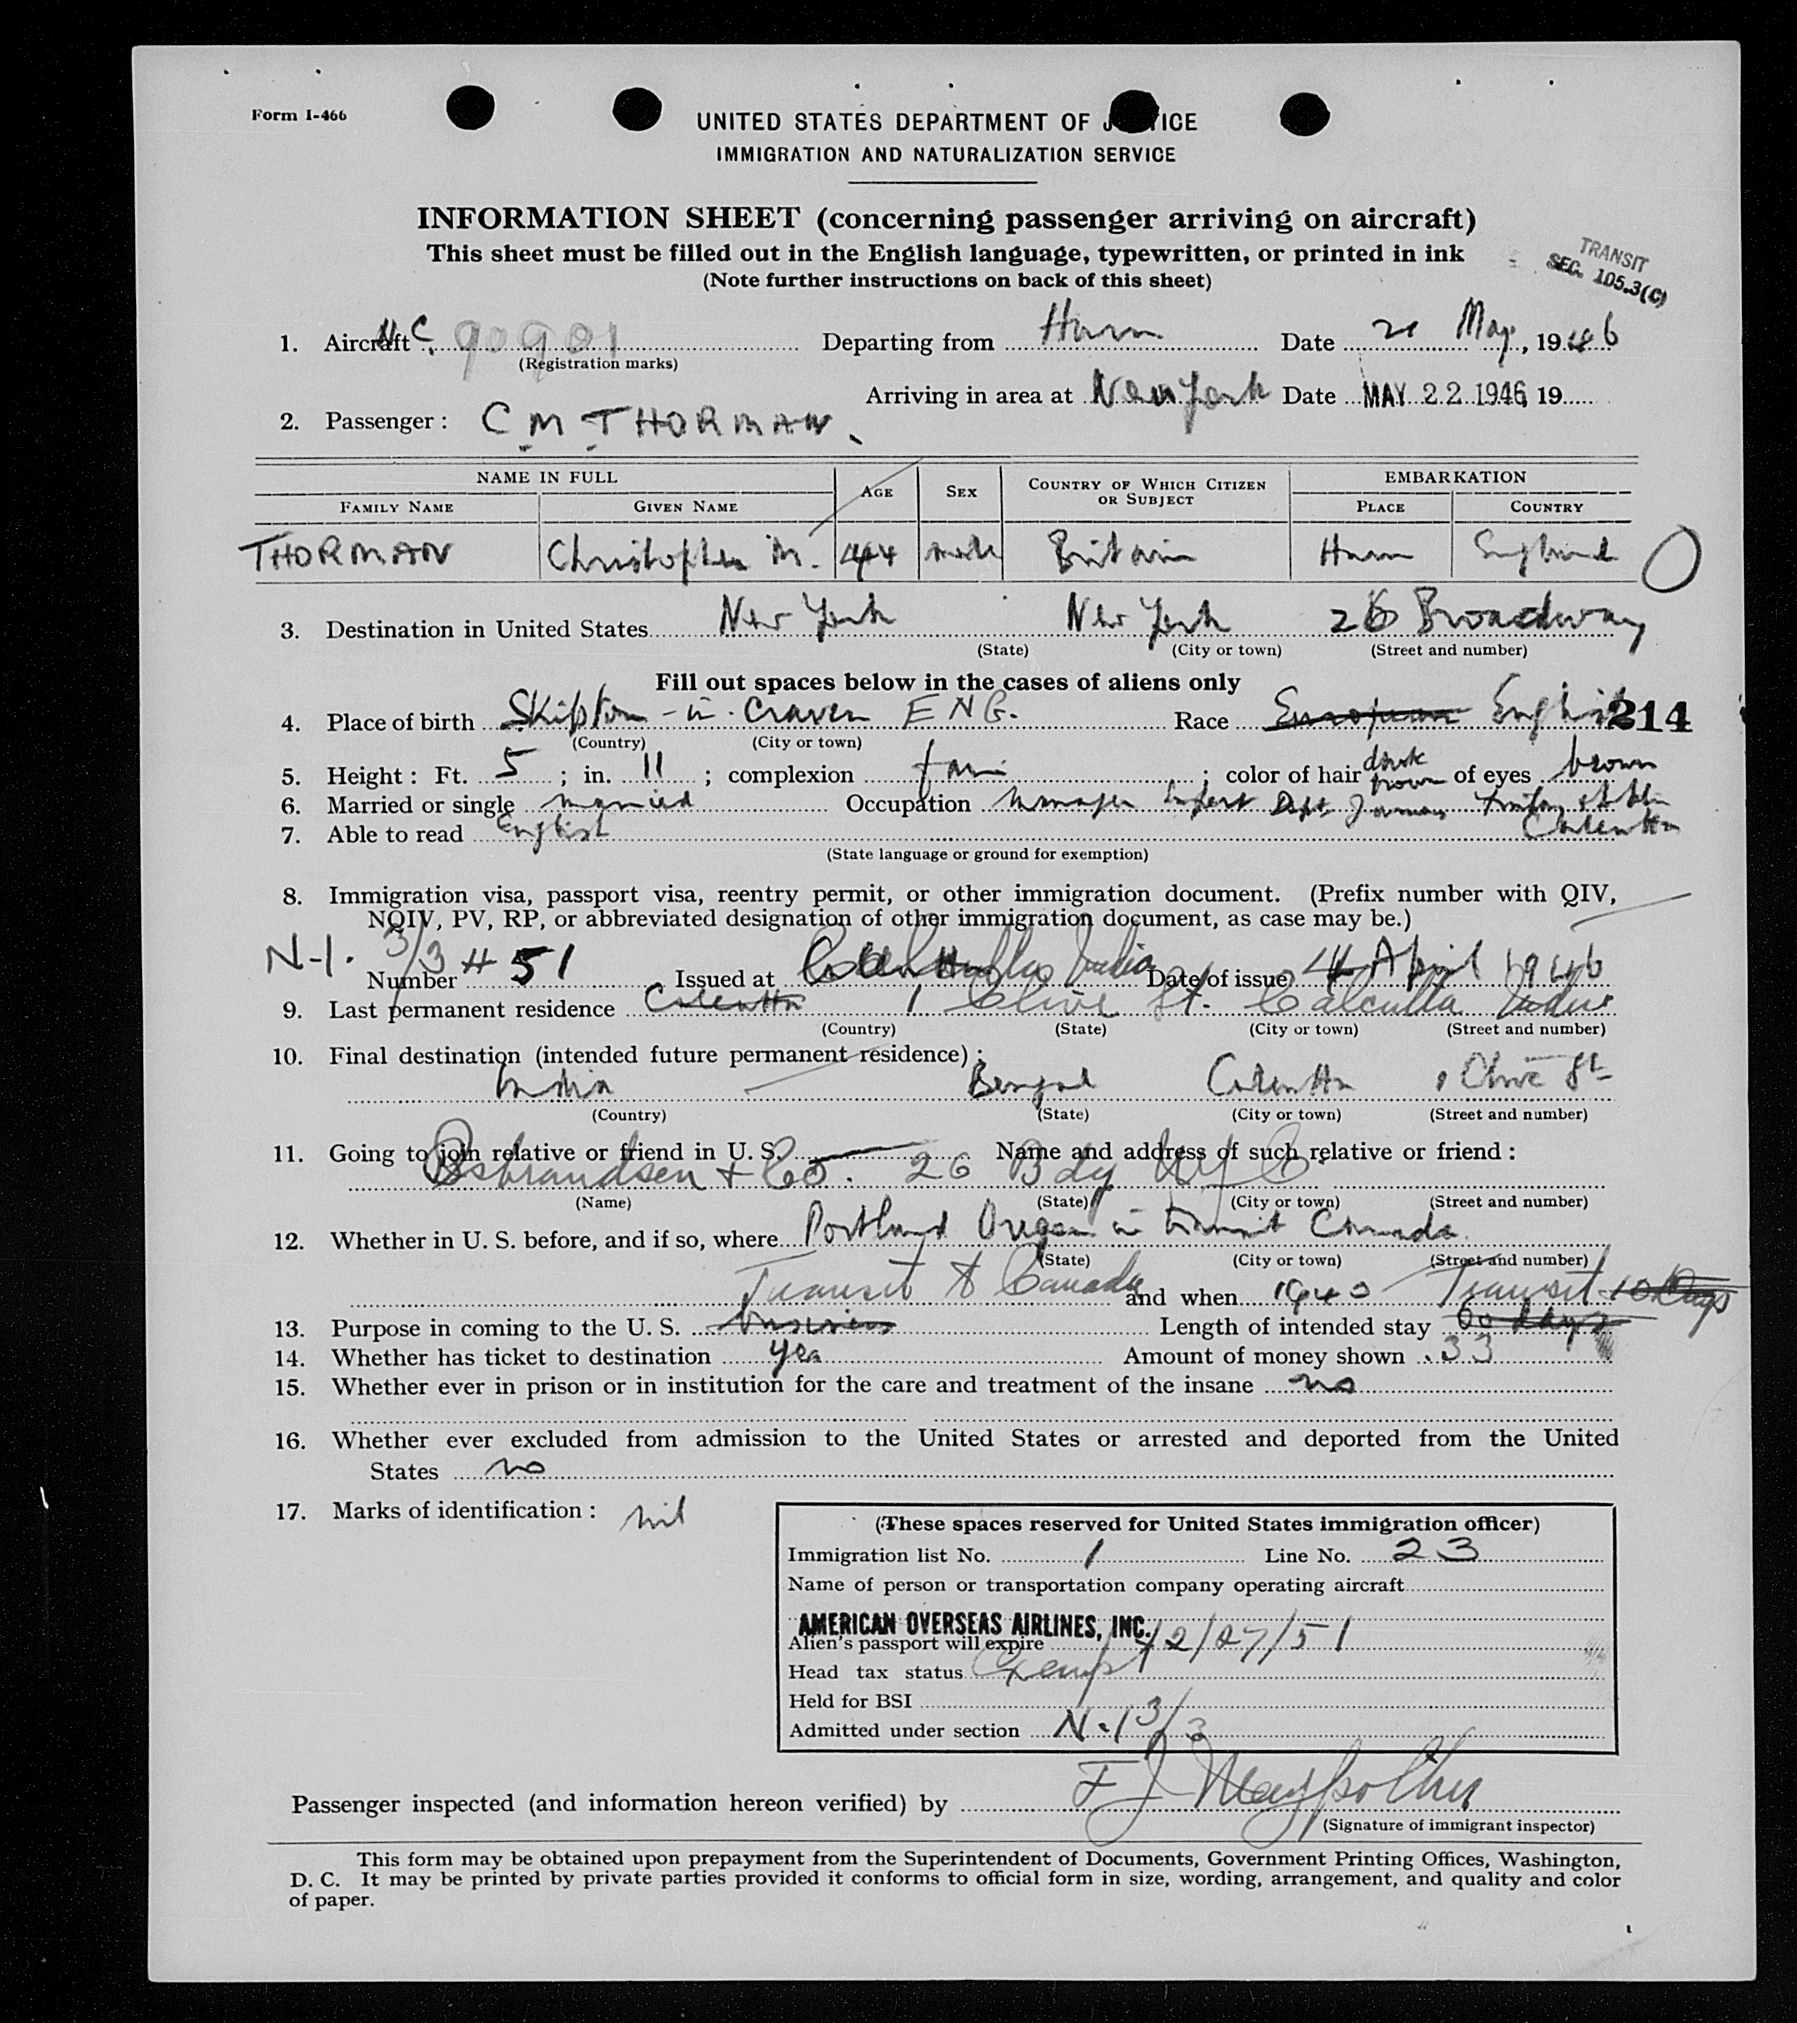 Form I-466
UNITED STATES DEPARTMENT OF J TICE
IMMIGRATION AND NATURALIZATION SERVICE
INFORMATION SHEET (concerning passenger arriving on aircraft)
This sheet must be filled out in the English language, typewritten, or printed in ink
(Note further instructions on back of this sheet)
TRANSIT
SEC. 105.3(C)
1. Aircraft NC. 90901 Departing from Hurn Date 21 May, 1946
(Registration marks)
Arriving in area at New York Date MAY 22 1946 19
2. Passenger: C M THORMAN
NAME IN FULL AGE SEX COUNTRY OF WHICH CITIZEN OR SUBJECT EMBARKATION
FAMILY NAME GIVEN NAME PLACE COUNTRY
THORMAN Christopher M. 44 male Britain Hurn England O
3. Destination in United States New York New York 26 Broadway
(State) (City or town) (Street and number)
Fill out spaces below in the cases of aliens only
4. Place of birth Skipton-in-Craven ENG. Race European English 214
(Country) (City or town)
5. Height: Ft. 5; in. 11; complexion fair; color of hair dark brown of eyes brown
6. Married or single married Occupation Manager Export Dept
7. Able to read English Calcutta
(State language or ground for exemption)
8. Immigration visa, passport visa, reentry permit, or other immigration document. (Prefix number with QIV,
NQIV, PV, RP, or abbreviated designation of other immigration document, as case may be.)
N-1. 3/3 Number # 51 Issued at Calcutta India Date of issue 4 April 1946
9. Last permanent residence Calcutta 1 Clive St. Calcutta India
(Country) (State) (City or town) (Street and number)
10. Final destination (intended future permanent residence):
India Bengal Calcutta 1 Clive St
(Country) (State) (City or town) (Street and number)
11. Going to join relative or friend in U. S. Name and address of such relative or friend:
Isbrandsen & Co. 26 Bdy NYC
(Name) (State) (City or town) (Street and number)
12. Whether in U. S. before, and if so, where Portland Oregon in transit Canada
(State) (City or town) (Street and number)
and when 1940
13. Purpose in coming to the U. S. business Transit to Canada Length of intended stay 60 days Transit 10 Days
14. Whether has ticket to destination yes Amount of money shown 33
15. Whether ever in prison or in institution for the care and treatment of the insane no
16. Whether ever excluded from admission to the United States or arrested and deported from the United
States no
17. Marks of identification: nil
(These spaces reserved for United States immigration officer)
Immigration list No. 1 Line No. 23
Name of person or transportation company operating aircraft
AMERICAN OVERSEAS AIRLINES, INC.
Alien's passport will expire 12/27/51
Head tax status Exempt
Held for BSI
Admitted under section N-1 3/3
Passenger inspected (and information hereon verified) by F J
(Signature of immigrant inspector)
This form may be obtained upon prepayment from the Superintendent of Documents, Government Printing Offices, Washington,
D. C. It may be printed by private parties provided it conforms to official form in size, wording, arrangement, and quality and color
of paper.